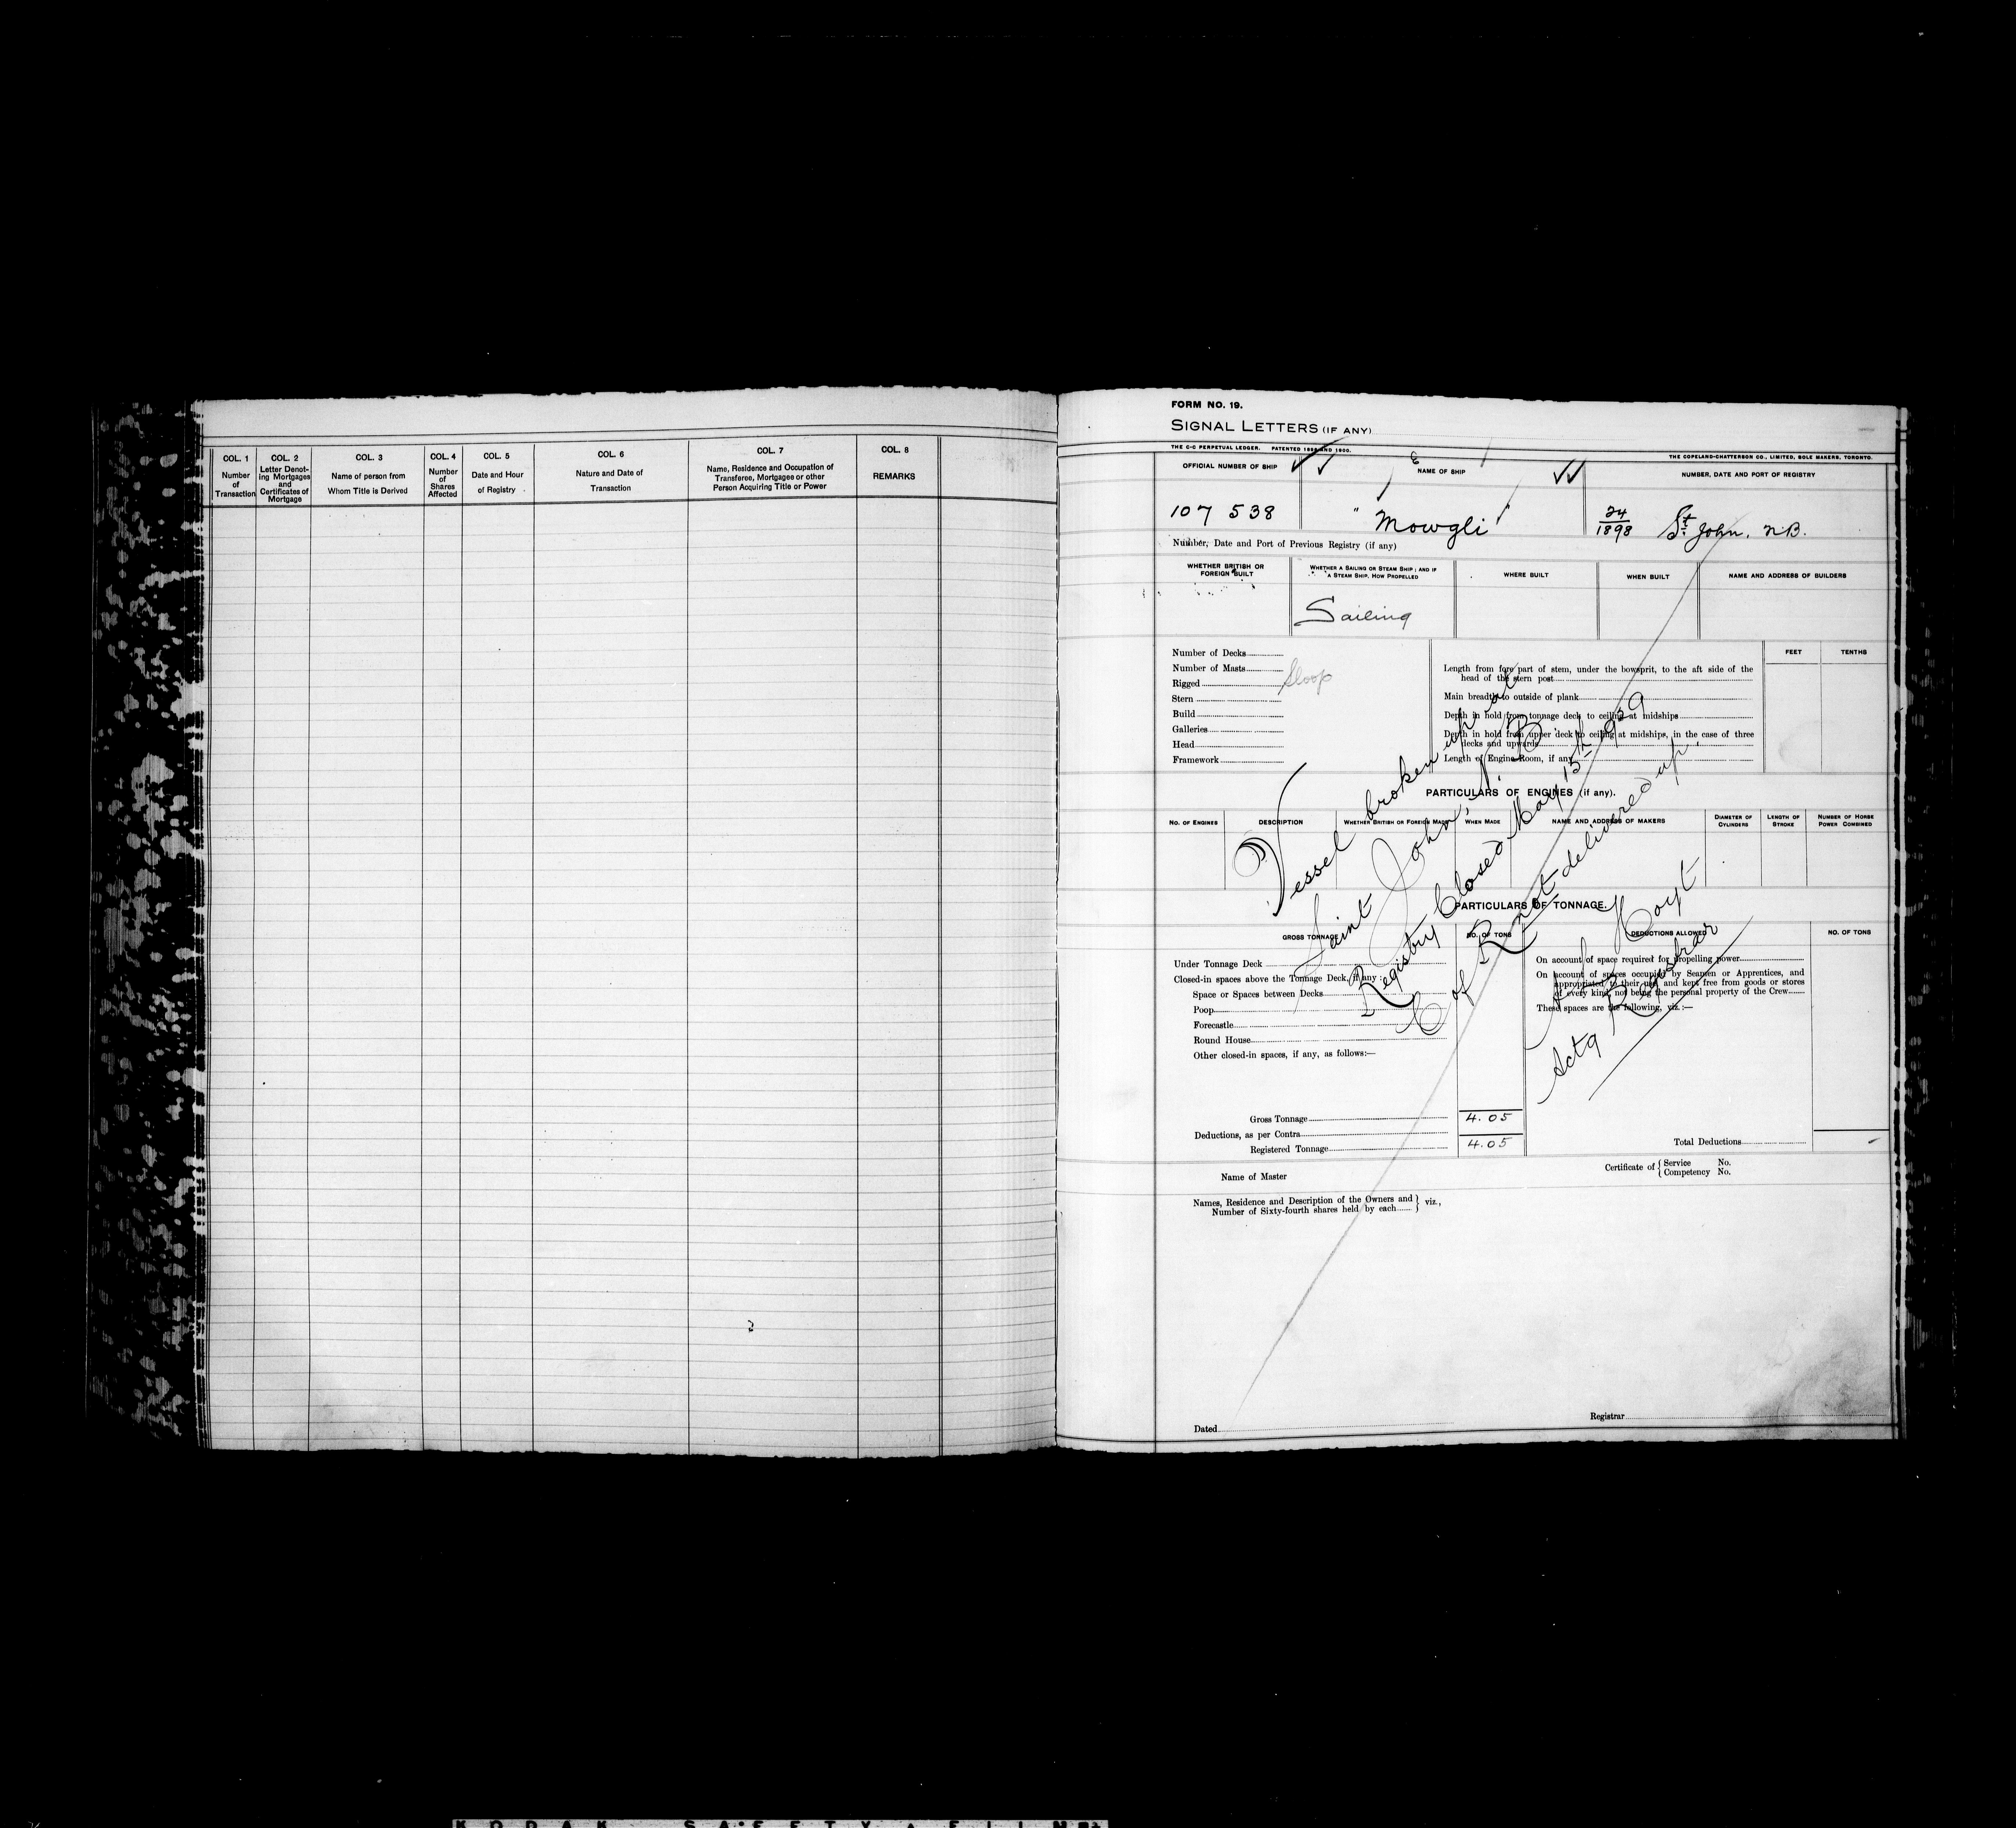 COL. 1
Number
of
Transaction
COL. 2
Letter Denot-
ing Mortgages
and
Certificates of
Mortgage
COL. 3
Name of person from
Whom Title is Derived
COL. 4
Number
of
Shares
Affected
COL. 5
Date and Hour
of Registry
COL. 6
Nature and Date of
Transaction
COL. 7
Name, Residence and Occupation of
Transferee, Mortgagee or other
Person Acquiring Title or Power
COL. 8
REMARKS
FORM NO. 19.
SIGNAL LETTERS (IF ANY)
THE C-C PERPETUAL LEDGER. PATENTED 1898 AND 1900.
THE COPELAND-CHATTERSON CO., LIMITED, SOLE MAKERS, TORONTO.
OFFICIAL NUMBER OF SHIP
NAME OF SHIP
NUMBER, DATE AND PORT OF REGISTRY
107 538
"Mowgli"
24/1898 St. John. N.B.
Number, Date and Port of Previous Registry (if any)
WHETHER BRITISH OR
FOREIGN BUILT
WHETHER A SAILING OR STEAM SHIP; AND IF
A STEAM SHIP, HOW PROPELLED
WHERE BUILT
WHEN BUILT
NAME AND ADDRESS OF BUILDERS
Sailing
Number of Decks
Number of Masts
Rigged Sloop
Stern
Build
Galleries
Head
Framework
FEET
TENTHS
Length from fore part of stem, under the bowsprit, to the aft side of the
head of the stern post
Main breadth to outside of plank
Depth in hold from tonnage deck to ceiling at midships
Depth in hold from upper deck to ceiling at midships, in the case of three
decks and upwards
Length of Engine Room, if any
PARTICULARS OF ENGINES (if any).
NO. OF ENGINES
DESCRIPTION
WHETHER BRITISH OR FOREIGN MADE
WHEN MADE
NAME AND ADDRESS OF MAKERS
DIAMETER OF
CYLINDERS
LENGTH OF
STROKE
NUMBER OF HORSE
POWER COMBINED
Vessel broken up at
Saint John, N.B.
Registry Closed May 15th 1929
C of R not delivered up.
Hoyt
Actg Registrar
PARTICULARS OF TONNAGE.
GROSS TONNAGE
NO. OF TONS
DEDUCTIONS ALLOWED
NO. OF TONS
Under Tonnage Deck
Closed-in spaces above the Tonnage Deck, if any:
Space or Spaces between Decks
Poop
Forecastle
Round House
Other closed-in spaces, if any, as follows:—
On account of space required for propelling power
On account of spaces occupied by Seamen or Apprentices, and
appropriated to their use, and kept free from goods or stores
of every kind, not being the personal property of the Crew
These spaces are the following, viz.:—
Gross Tonnage 4.05
Deductions, as per Contra
Registered Tonnage 4.05
Total Deductions -
Name of Master
Certificate of { Service No.
Competency No.
Names, Residence and Description of the Owners and
Number of Sixty-fourth shares held by each } viz.,
Dated
Registrar
KODAK SAFETY FILM